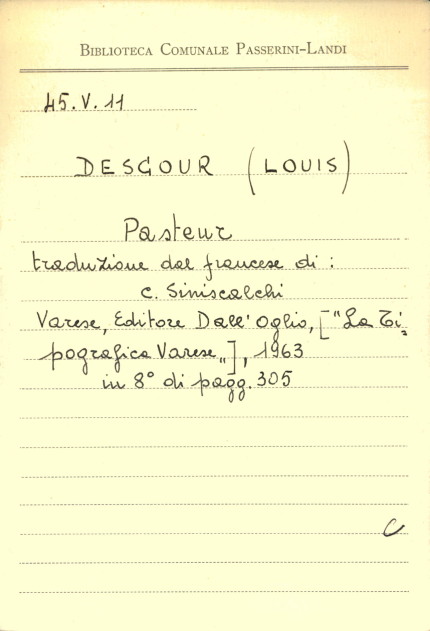 BIBLIOTECA COMUNALE PASSERINI-LANDI
45.V.11
DESGOUR (LOUIS)
Pasteur
traduzione dal francese di:
C. Siniscalchi
Varese, Editore Dall'Oglio, ["La Ti=
pografica Varese„], 1963
in 8° di pagg. 305
C